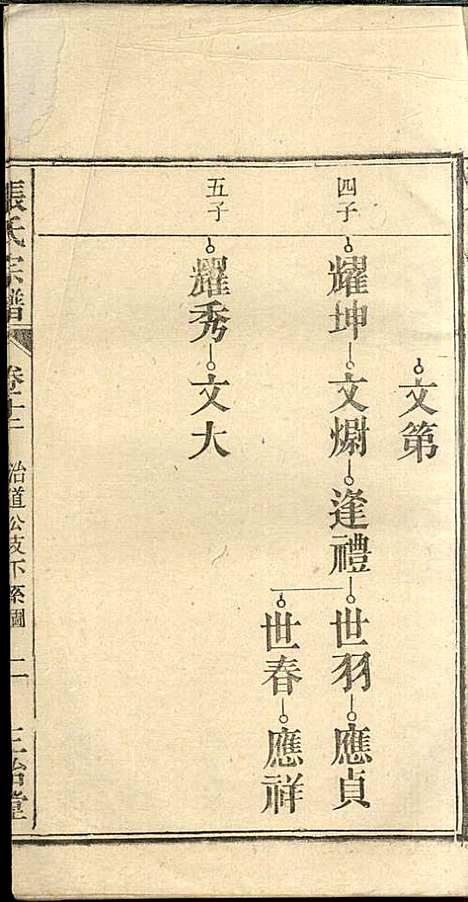 文第
四子
耀坤 文焵 逢禮 世羽 應貞
世春 應祥
五子
耀秀 文大
張氏宗譜 卷十二 冶道公支下系圖 二